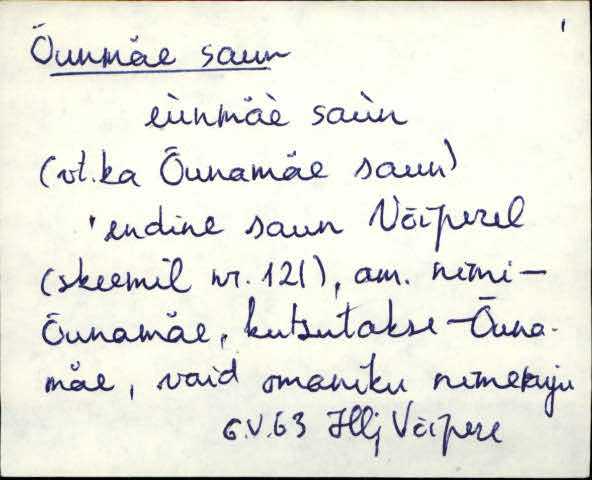 1
Õunmäe saun
eùnmäè saùn
(vt. ka Õunamäe saun)
endine saun Võiperel
(skeemil nr. 121), am. nimi –
Õunamäe, kutsutakse – Õuna-
mäe, vaid omaniku nimekuju
6.V.63 Võipere